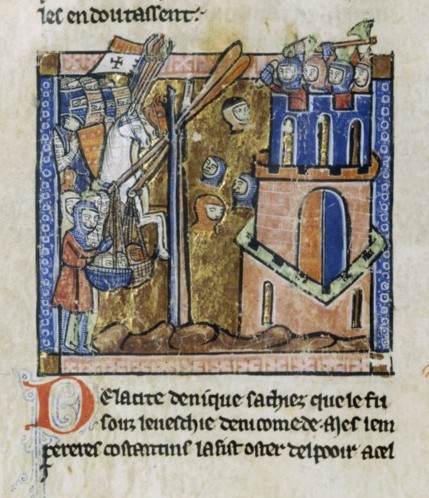 les en doutassent.
De la cite de nique sachiez que le fu
soiz leveschie de nicomede. Mes lem
pereres costantins la fist oster del pooir a cel